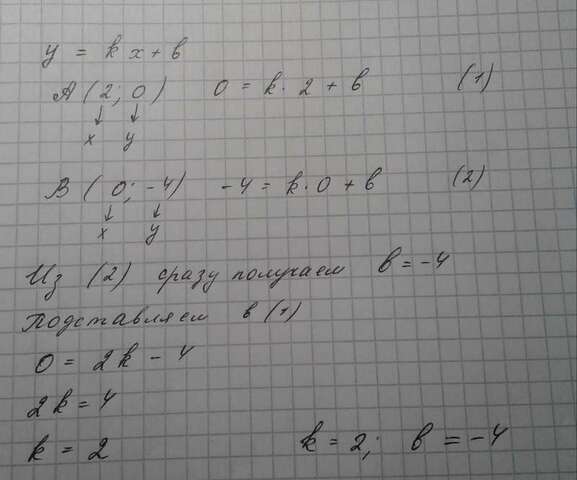 y = kx + b
A (2; 0) 0 = k · 2 + b (1)
↓ ↓
x y
B (0; -4) -4 = k · 0 + b (2)
↓ ↓
x y
Из (2) сразу получаем b = -4
Подставляем в (1)
0 = 2k - 4
2k = 4
k = 2 k = 2; b = -4